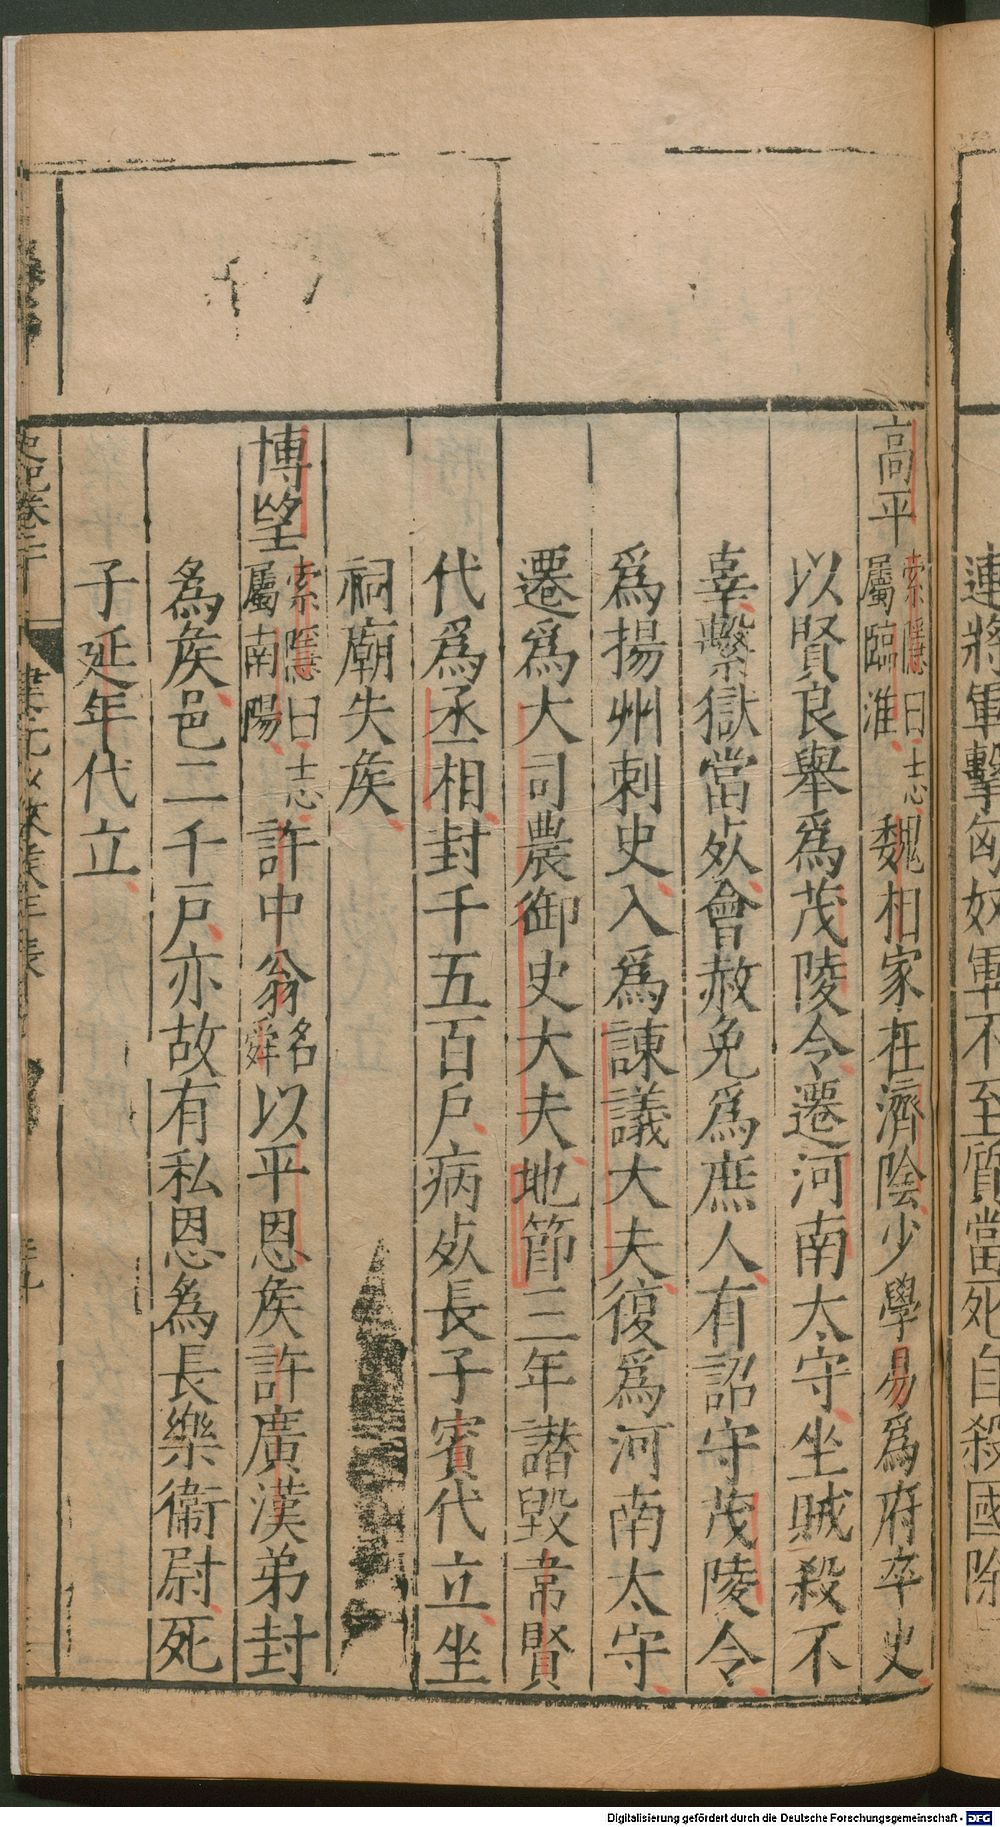 連將軍擊匈奴軍不至質當死自殺國除
高平索隱曰志屬臨淮魏相家在濟陰少學易為府卒史
以賢良舉為茂陵令遷河南太守坐賊殺不
辜繫獄當死會赦免為庶人有詔守茂陵令
為揚州刺史入為諫議大夫復為河南太守
遷為大司農御史大夫地節三年譖毀韋賢
代為丞相封千五百戶病死長子賓代立坐
祠廟失矦
博望索隱曰志屬南陽許中翁名舜以平恩矦許廣漢弟封
為矦邑二千戶亦故有私恩為長樂衞尉死
子延年代立
史記卷二十
Digitalisierung gefördert durch die Deutsche Forschungsgemeinschaft - DFG